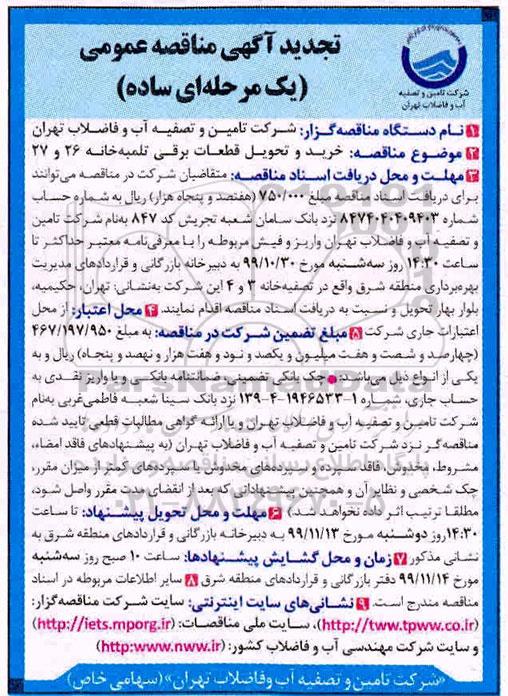 تجدید آگهی مناقصه عمومی
(یک مرحله‌ای ساده)
شرکت تامین و تصفیه
آب و فاضلاب تهران
1 نـام دسـتگاه مناقصه‌گزار: شـرکت تامین و تصفیـه آب و فاضـلاب تهران
2 موضوع مناقصه: خرید و تحویل قطعات برقی تلمبه‌خانه ۲۶ و ۲۷
3 مهلـت و محل دریافت اسـناد مناقصـه: متقاضیان شـرکت در مناقصه می‌توانند
برای دریافت اسناد مناقصه مبلغ ۷۵۰/۰۰۰ (هفتصد و پنجاه هزار) ریال به شماره حساب
شماره ۸۴۷۴۰۴۰۴۰۹۴۰۳ نزد بانک سامان شعبه تجریش کد ۸۴۷ به‌نام شرکت تامین
و تصفیـه آب و فاضلاب تهران واریز و فیش مربوطه را با معرفی‌نامه معتبر حداکثر تا
ساعت ۱۴:۳۰ روز سه‌شنبه مورخ ۹۹/۱۰/۳۰ به دبیرخانه بازرگانی و قراردادهای مدیریت
بهره‌برداری منطقه شرق واقع در تصفیه‌خانه ۳ و ۴ این شرکت به‌نشانی: تهران، حکیمیه،
بلوار بهار تحویل و نسبت به دریافت اسناد مناقصه اقدام نمایند. 4 محل اعتبار: از محل
اعتبارات جاری شرکت 5 مبلغ تضمین شرکت در مناقصه: به مبلغ ۴۶۷/۱۹۷/۹۵۰
(چهارصـد و شـصت و هفت میلیـون و یکصد و نود و هفت هزار و نهصد و پنجـاه) ریال و به
یکی از انواع ذیل می‌باشد: ● چک بانکی تضمینی، ضمانتنامه بانکـی و یا واریز نقدی به
حساب جاری، شماره ۱-۱۹۴۶۵۳۳-۴-۱۳۹ نزد بانک سینا شعبه فاطمی‌غربی به‌نام
شـرکت تامین و تصفیه آب و فاضلاب تهران و یا ارائه گواهی مطالبات قطعی تایید شده
مناقصه‌گر نـزد شـرکت تامین و تصفیه آب و فاضلاب تهـران (به پیشـنهادهای فاقد امضاء،
مشـروط، مخدوش، فاقد سـپرده و سـپرده‌های مخدوش یا سـپرده‌های کمتر از میزان مقرر،
چک شخصی و نظایر آن و همچنین پیشنهاداتی که بعد از انقضای مدت مقرر واصل شود،
مطلقـا ترتیب اثر داده نخواهد شـد.) 6 مهلت و محل تحویل پیشـنهاد: تا ساعت
۱۴:۳۰ روز دوشنبه مـورخ ۹۹/۱۱/۱۳ به دبیرخانه بازرگانی و قراردادهای منطقه شـرق به
نشانی مذکور 7 زمان و محل گشایش پیشنهادها: ساعت ۱۰ صبح روز سه‌شنبه
مورخ ۹۹/۱۱/۱۴ دفتر بازرگانی و قراردادهای منطقه شرق 8 سایر اطلاعات مربوطه در اسناد
مناقصه مندرج است. 9 نشـانی‌های سایت اینترنتی: سایت شرکت مناقصه‌گزار:
(http://tww.tpww.co.ir)، سایت ملی مناقصات: (http://iets.mporg.ir)
و سایت شرکت مهندسی آب و فاضلاب کشور: (http:www.nww.ir)
«شرکت تامین و تصفیه آب و فاضلاب تهران» (سهامی خاص)